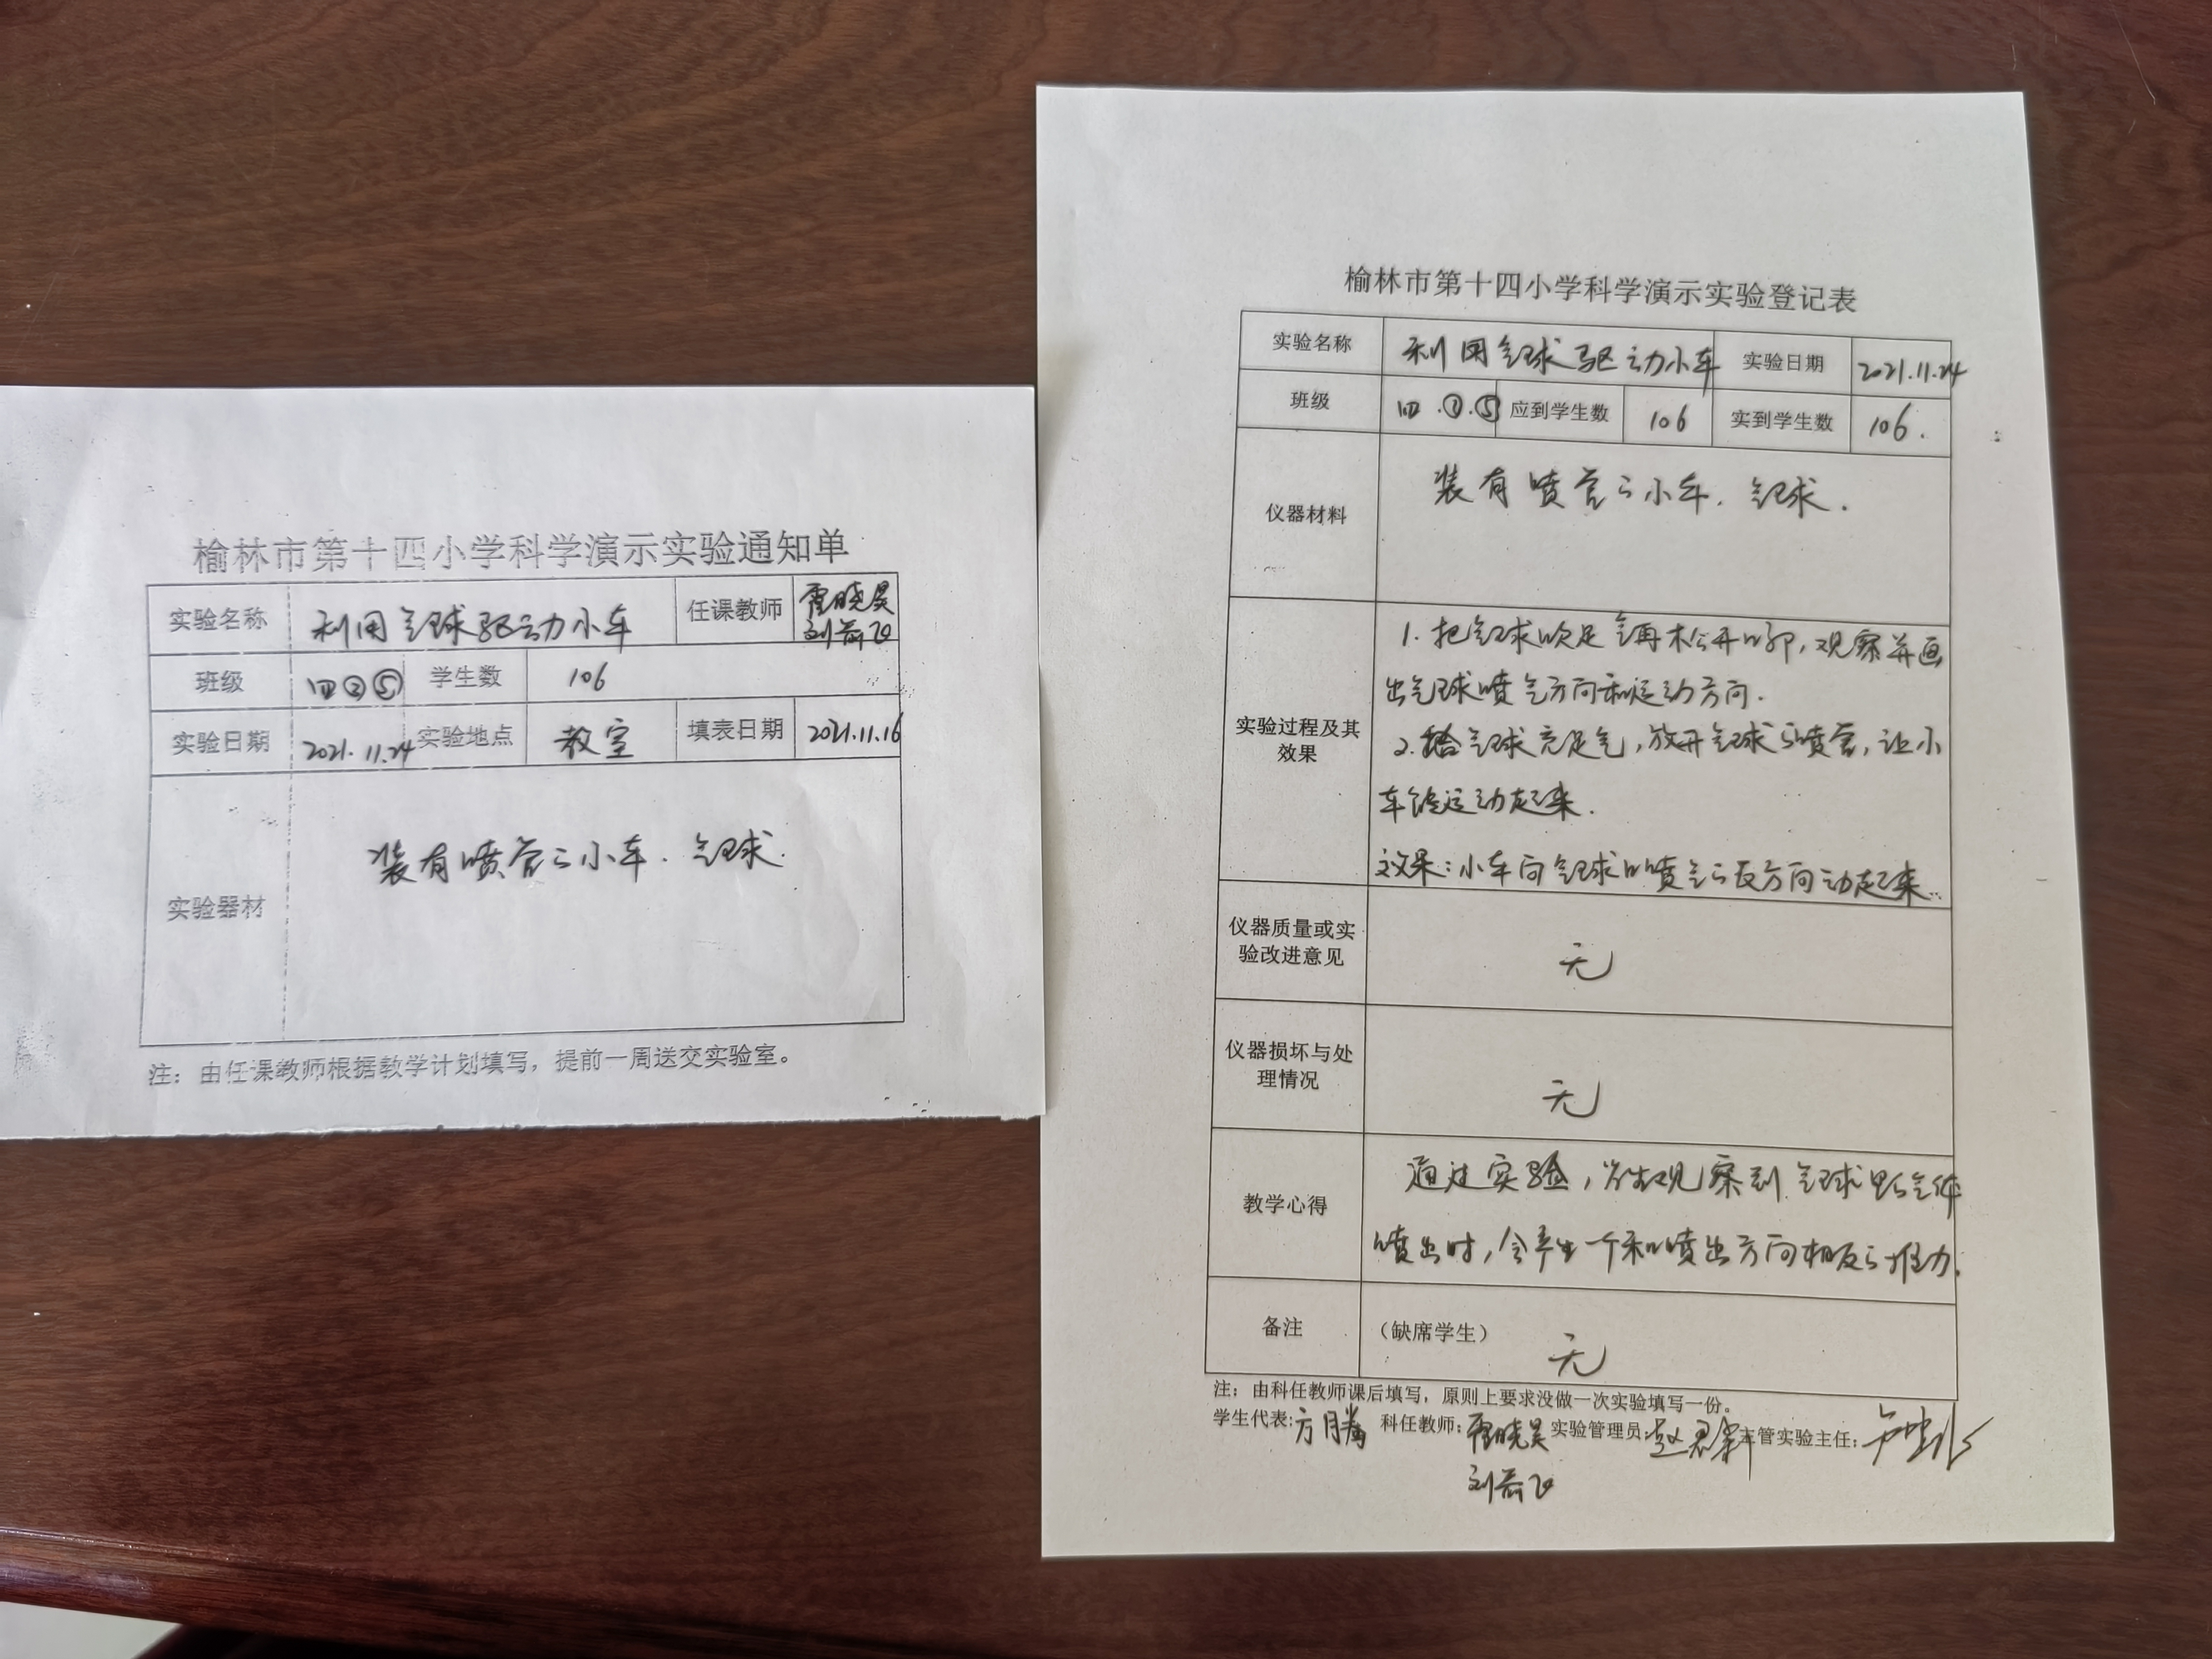 榆林市第十四小学科学演示实验通知单
实验名称 利用气球驱动小车 任课教师 霍晓昊
班级 四②⑤ 学生数 106
实验日期 2021.11.24 实验地点 教室 填表日期 2021.11.16
实验器材 装有喷管的小车. 气球.
注：由任课教师根据教学计划填写，提前一周送交实验室。
榆林市第十四小学科学演示实验登记表
实验名称 利用气球驱动小车 实验日期 2021.11.24
班级 四.②.⑤ 应到学生数 106 实到学生数 106.
仪器材料 装有喷管的小车. 气球.
实验过程及其效果
1. 把气球吹足气再松开口部,观察并画
出气球喷气方向和运动方向.
2. 给气球充足气,放开气球的喷管,让小
车能运动起来.
效果:小车向气球口喷气的反方向动起来.
仪器质量或实验改进意见 无
仪器损坏与处理情况 无
教学心得
通过实验,学生观察到气球里的气体
喷出时,会产生一个和喷出方向相反的推力.
备注 （缺席学生） 无
注：由科任教师课后填写，原则上要求没做一次实验填写一份。
学生代表: 方腾 科任教师: 霍晓昊 实验管理员: 主管实验主任: